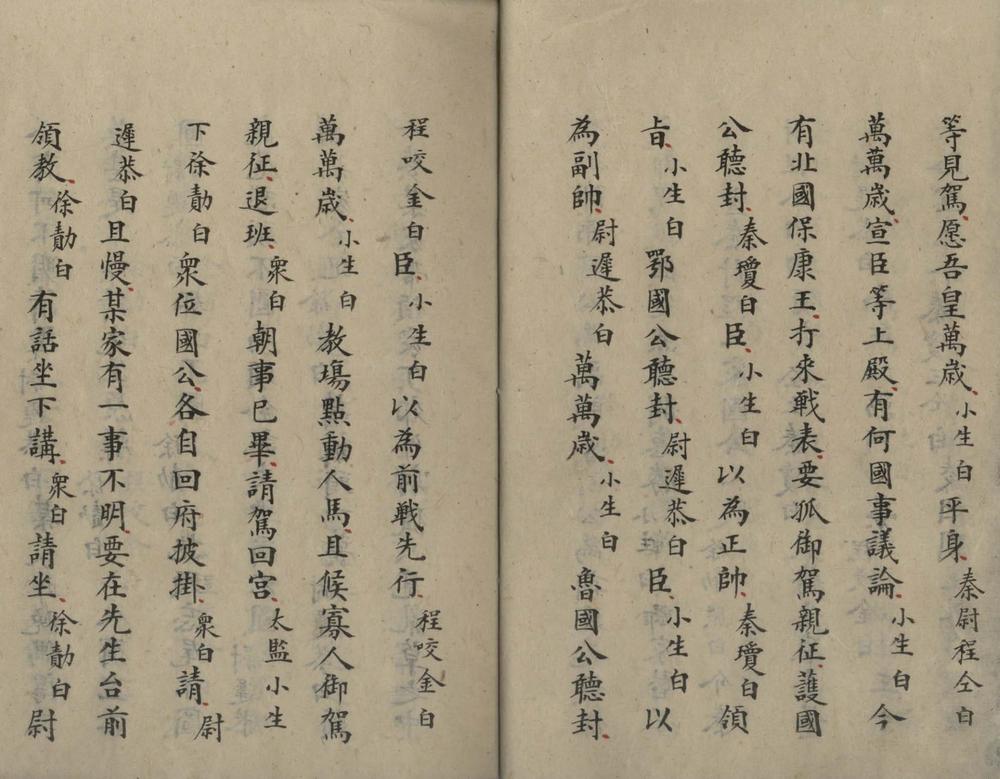 等見駕愿吾皇萬歲小生白平身秦尉程仝白
萬萬歲宣臣等上殿有何國事議論小生白今
有北國保康王打來戰表要孤御駕親征護國
公聽封秦瓊白臣小生白以為正帥秦瓊白領
旨小生白鄂國公聽封尉遲恭白臣小生白以
為副帥尉遲恭白萬萬歲小生白魯國公聽封
程咬金白臣小生白以為前戰先行程咬金白
萬萬歲小生白教場點動人馬且候寡人御駕
親征退班衆白朝事已畢請駕回宮太監小生
下徐勣白衆位國公各自回府披掛衆白請尉
遲恭白且慢某家有一事不明要在先生台前
領教徐勣白有話坐下講衆白請坐徐勣白尉